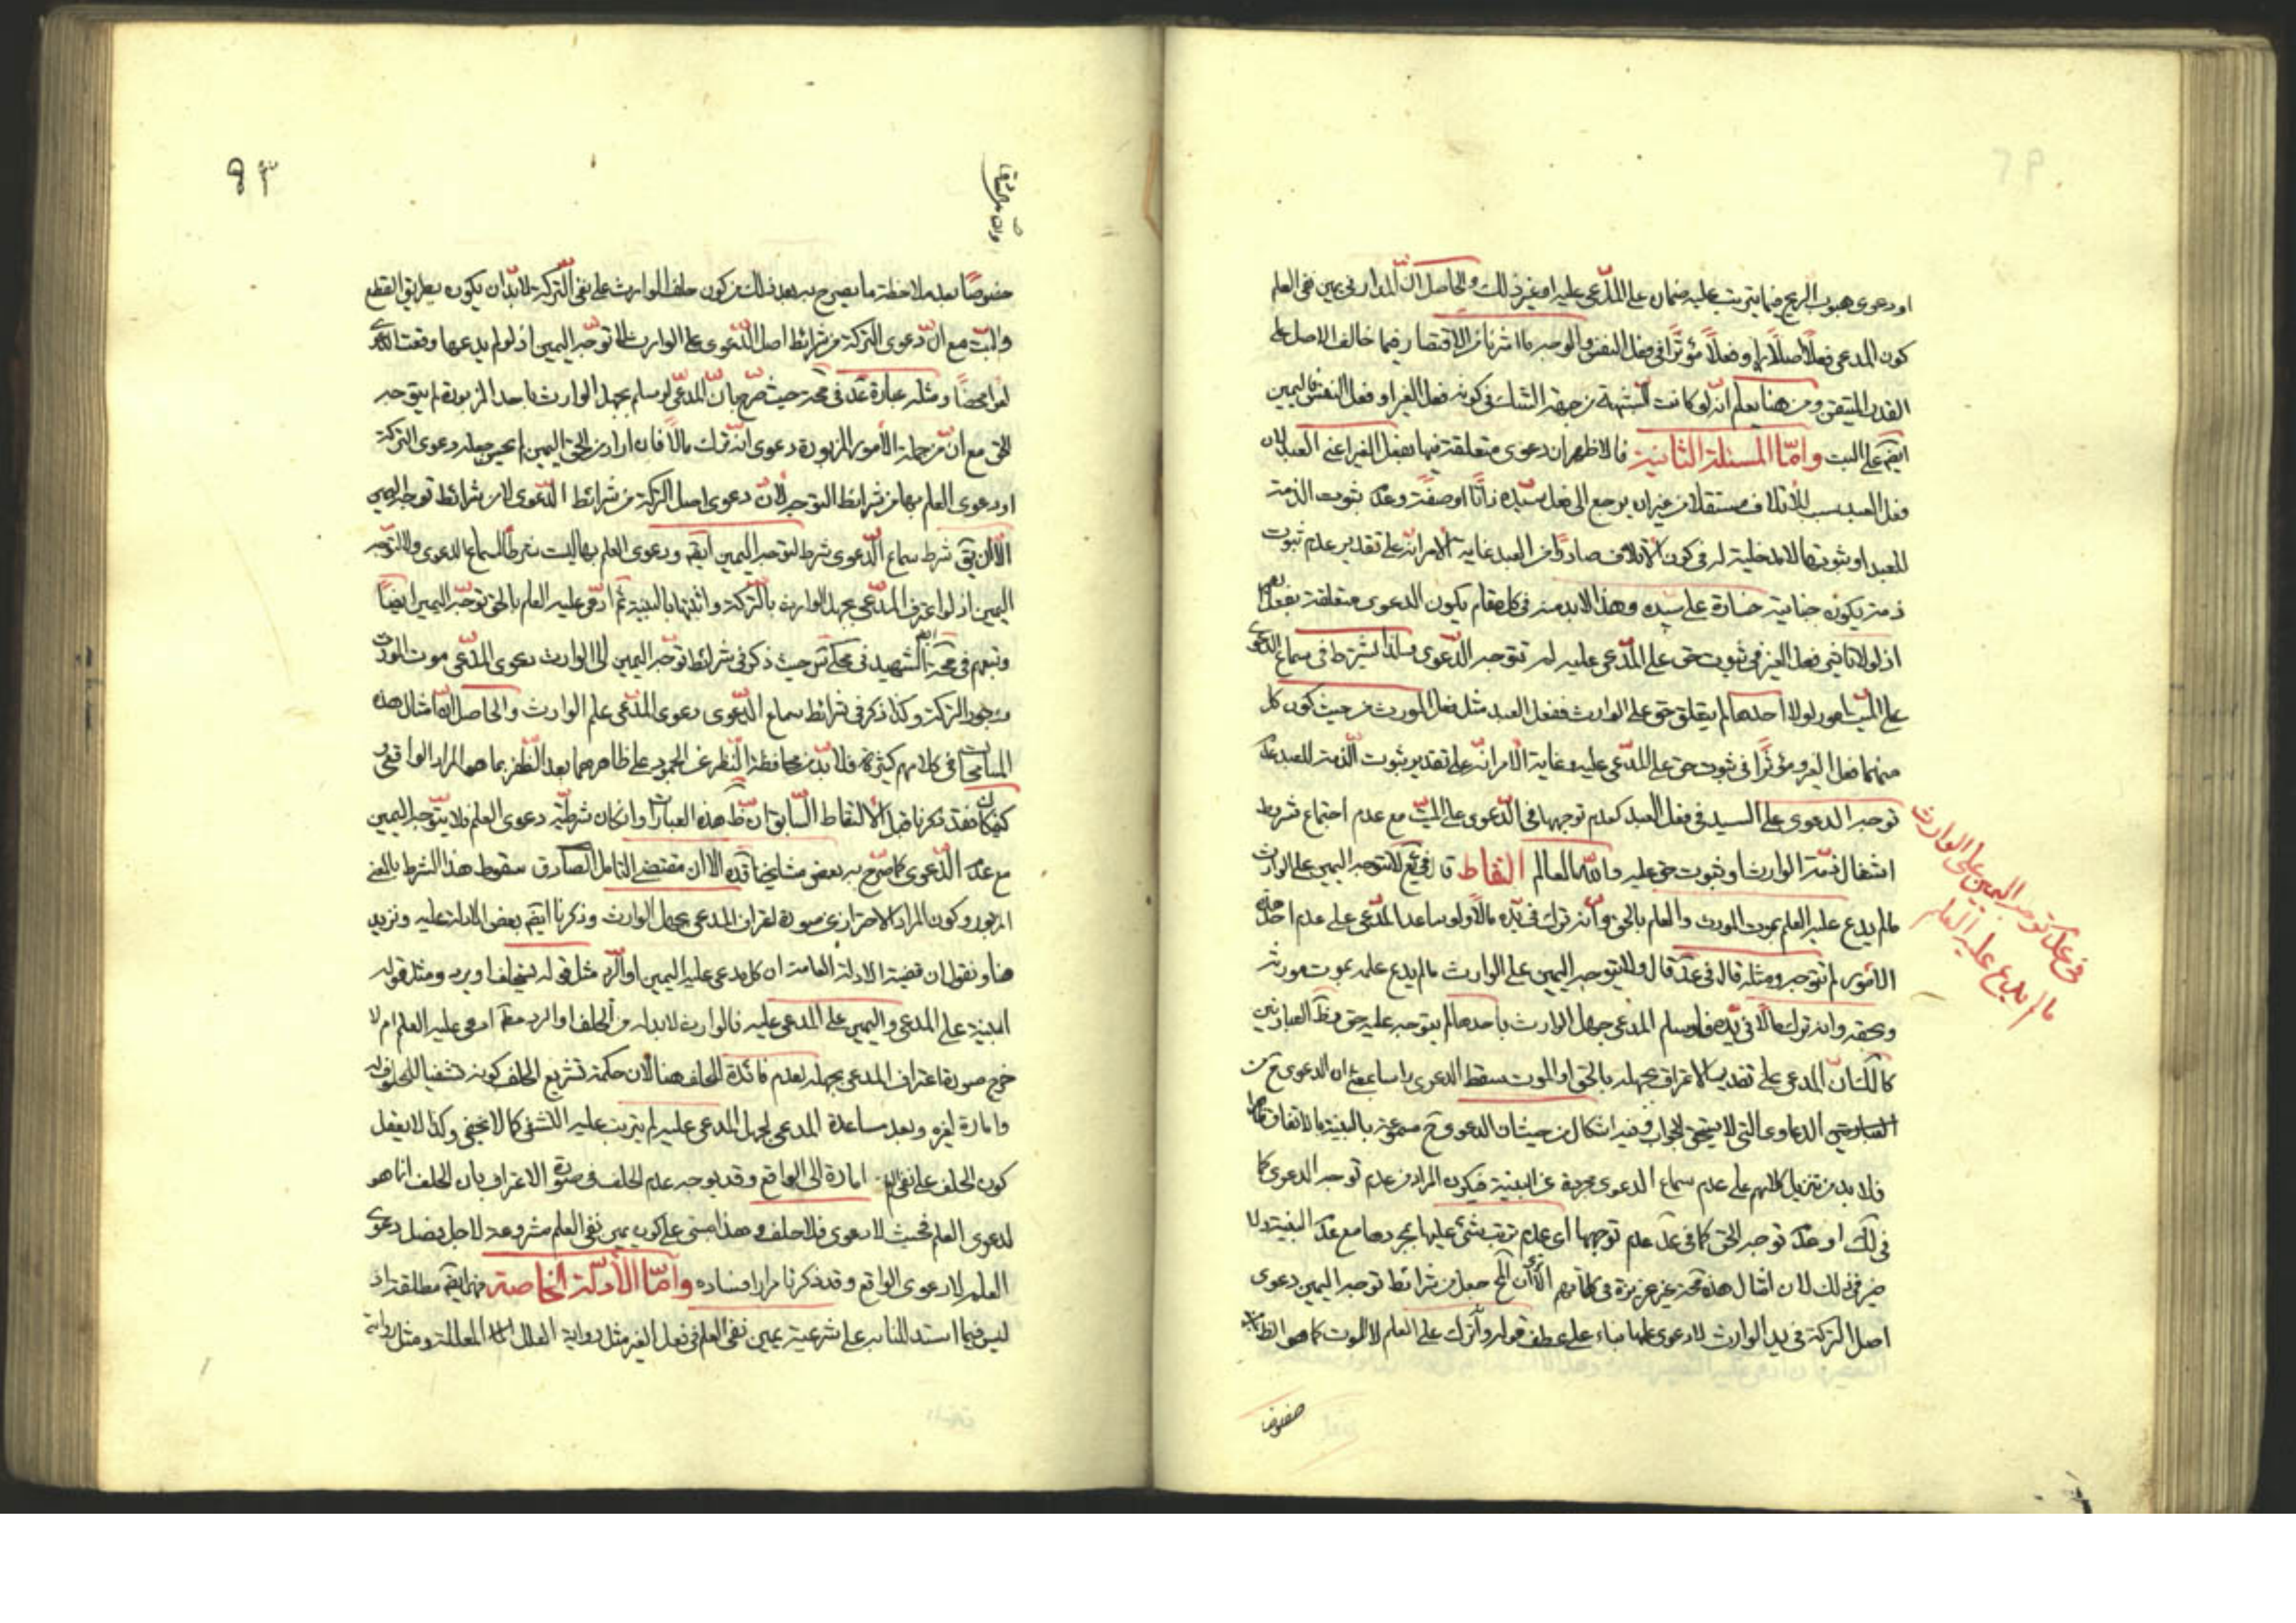 او دعوى هبوب الريح فيما يترتب عليه ضمان على المدّعى عليه او غير ذلك والحاصل انّ المدار فى يمين نفى العلم
كون المدعى فعلاً اصلاً او فعلاً مؤثرا فى فعل النفس والوجه ما اشرنا من الاقتصار فيما خالف الاصل على
القدر المتيقن ومن هنا يعلم انّه لو كانت الشبهة من جهة الشك فى كونه فعل الغير او فعل النفس فاليمين
ايضا على البت وامّا المسئلة الثانية فالاظهر ان دعوى متعلقة فيها بفعل الغير اعنى العبد لان
فعل العبد سبب للاتلاف مستقلا من غير ان يرجع الى فعل سيده ذاتا او صفة وعدم ثبوت الذمة
للعبد او ثبوتها لا مدخلية له فى كون الاتلاف صادرا من العبد غاية الامر انّه على تقدير عدم ثبوت
ذمته يكون جنايته خسارة على سيده وهذا لابد منه فى كل مقام يكون الدعوى متعلقة بفعل الغير
اذ لولا تاثير فعل الغير فى ثبوت حق على المدّعى عليه لم تتوجه الدّعوى ولذا يشترط فى سماع الدعوى
على الميّت امور لولا احدها لم يتعلق حق على الوارث ففعل العبد مثل فعل المورث من حيث كون كل
منهما فعل الغير ومؤثرا فى ثبوت حق على المدّعى عليه وغاية الامر انّه على تقدير ثبوت الذمة للعبد عدم
توجه الدعوى على السيد فى فعل العبد كعدم توجهها فى الدّعوى على الميّت مع عدم اجتماع شرط
اشتغال ذمة الوارث او ثبوت حق عليه والله العالم التقاط قال فى يع لا تتوجه اليمين على الوارث
مالم يدع عليه العلم بموت المورث والعلم بالحق وأنه ترك فى يده مالا ولو ساعد المدّعى على عدم احد هذه
الامور لم تتوجه ومثله قاله فى عد قال ولا يتوجه اليمين على الوارث مالم يدع علمه بموت مورثه
وبحقه وانه ترك مالا فى يده ولو سلم المدعى جهل الوارث باحدها لم يتوجه عليه حق وظ العبارتين
كالك ان المدعى على تقدير الاعتراف بجهله بالحق او الموت سقط الدعوى راسا بمعنى ان الدعوى ح من
الدعاوى التى لا يستحق الجواب وفيه اشكال من حيث ان الدعوى ح مسموعة بالبينة بالاتفاق ظاهرا
فلا بد من تنزيل كلامهم على عدم سماع الدعوى مجردة عن البينة فيكون المراد من عدم توجه الدعوى كما
فى لك او عدم توجه الحق كما فى عد عدم توجهها اى عدم ترتب شئ عليها بمجردها مع عدم البينة ولا
ضير فى ذلك لان امثال هذه غير عزيزة فى كلماتهم الا ترى ان المح جعل من شرائط توجه اليمين دعوى
اصل التركة فى يد الوارث لا دعوى علمها بناء على عطف قوله وأنه ترك على العلم لا الموت كما هو الظاهر
خصوصا
فى عدم توجه اليمين على الوارث
مالم يدع عليه العلم
٩٣
خصوصاً بعد ملاحظة ما يصرح به بعد ذلك من كون حلف الوارث على نفى التركة لابدّ ان يكون بطريق القطع
والبتّ مع انّ دعوى التركة من شرائط اصل الدّعوى على الوارث لا توجه اليمين اذ لو لم يدعها وقعت الدعوى
لغوا محضاً ومثله عبارة عد فى حيث صرّح بانّ المدّعى لو سلم بجهل الوارث باحد المزبورة لم يتوجه
الحق مع انّ من جملة الامور المزبورة دعوى انه ترك مالا فان اراد من الحق اليمين لم يحسن جعله دعوى التركة
او دعوى العلم بها من شرائط التوجه لانّ دعوى اصل التركة من شرائط الدّعوى لا من شرائط توجه اليمين
الا ان يق شرط سماع الدّعوى شرط لتوجه اليمين ايضا ودعوى العلم بها ليست شرطا لسماع الدعوى ولا لتوجه
اليمين اذ لو اعترف المدّعى بجهل الوارث بالتركة واثبتها بالبينة ثم ادّعى عليه العلم بالحق توجّه اليمين ايضاً
وتبعهم فى الشهيد فى محكى س حيث ذكر فى شرائط توجّه اليمين الى الوارث دعوى المدّعى موت المورث
ووجود التركة وكذا ذكر فى شرائط سماع الدّعوى دعوى المدّعى علم الوارث والحاصل انّ امثال هذه
المسامحات فى كلامهم كثيرة فلا بدّ من محافظة النّظر عن الجمود على ظاهرهما بعد الظفر بما هو المراد الواقعى
كيف كان فقد ذكرنا قبل الالتقاط السّابق انّ ظ هذه العبارات وان كان شرطيّة دعوى العلم فلا يتوجه اليمين
مع عدم الدّعوى كما صرّح به بعض مشايخنا قده الا ان مقتضى التامل الصادق سقوط هذا الشرط بالمعنى
المزبور وكون المراد الاحتراز عن صورة اعتراف المدعى بجهل الوارث وذكرنا ايضا بعض الادلة عليه ونزيد
هنا ونقول ان قضية الادلة العامة ان كل مدعى عليه اليمين او الرّد مثل قوله يستحلف او يرد ومثل قوله
البينة على المدعى واليمين على المدعى عليه فالوارث لابد له من الحلف او الرد مطلقا ادعى عليه العلم ام لا
خرج صورة اعتراف المدعى بجهله لعدم فائدة للحلف هنا لان حكمة تشريع الحلف كونه تشفيا للمحلوف له
وامارة لغيره وبعد مساعدة المدعى لجهل المدعى عليه لم يترتب عليه التشفى كما لا يخفى وكذا لا يعقل
كون الحلف على نفى العلم امارة الى الواقع وقد يوجه عدم الحلف فى صورة الاعتراف بان الحلف انما هو
لدعوى العلم فحيث لا دعوى فلا حلف وهذا مبنى على كون يمين نفى العلم مشروعة لاجل فصل دعوى
العلم لا دعوى الواقع وقد ذكرنا مرارا فساده وامّا الأدلّة الخاصة فهى ايضا مطلقة اذ
ليس فيما استدللنا به على شرعية يمين نفى العلم فى فعل الغير مثل رواية العلل المعللة ومثل رواية